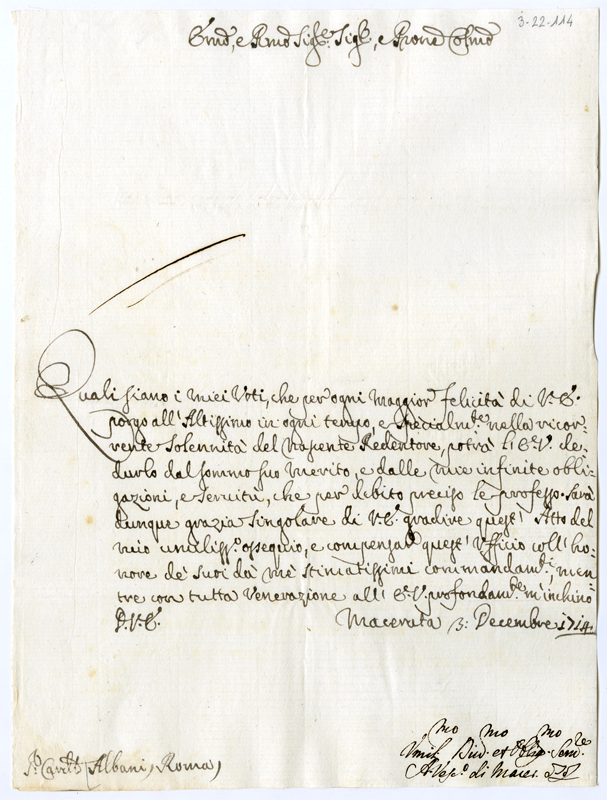 3-22-114
Emo, e Rmo Sigre. Sigre, e Prone Colmo
Quali siano i miei Voti, che per ogni maggior felicità di V: E:
porgo all' Altissimo in ogni tempo, e specialmte. nella ricor-
rente Solennità del Nascente Redentore, potrà l'E: V: de-
durlo dal sommo suo merito, e dalle mie infinite obli-
gazioni, e servitù, che per debito preciso Le professo. Sarà
dunque grazia singolare di V: E: gradire quest' Atto del
mio umiliss:o ossequio, e compensar quest' Ufficio coll' ho-
nore de' suoi da me stimatissimi commandamti, men
tre con tutta Venerazione all' E: V: profondamte. m'inchino
D. V: E:
Macerata 3: Decembre 1714.
Albani, Roma
Umilmo Divmo et Obligmo Serre
A Vesco: di Macer.